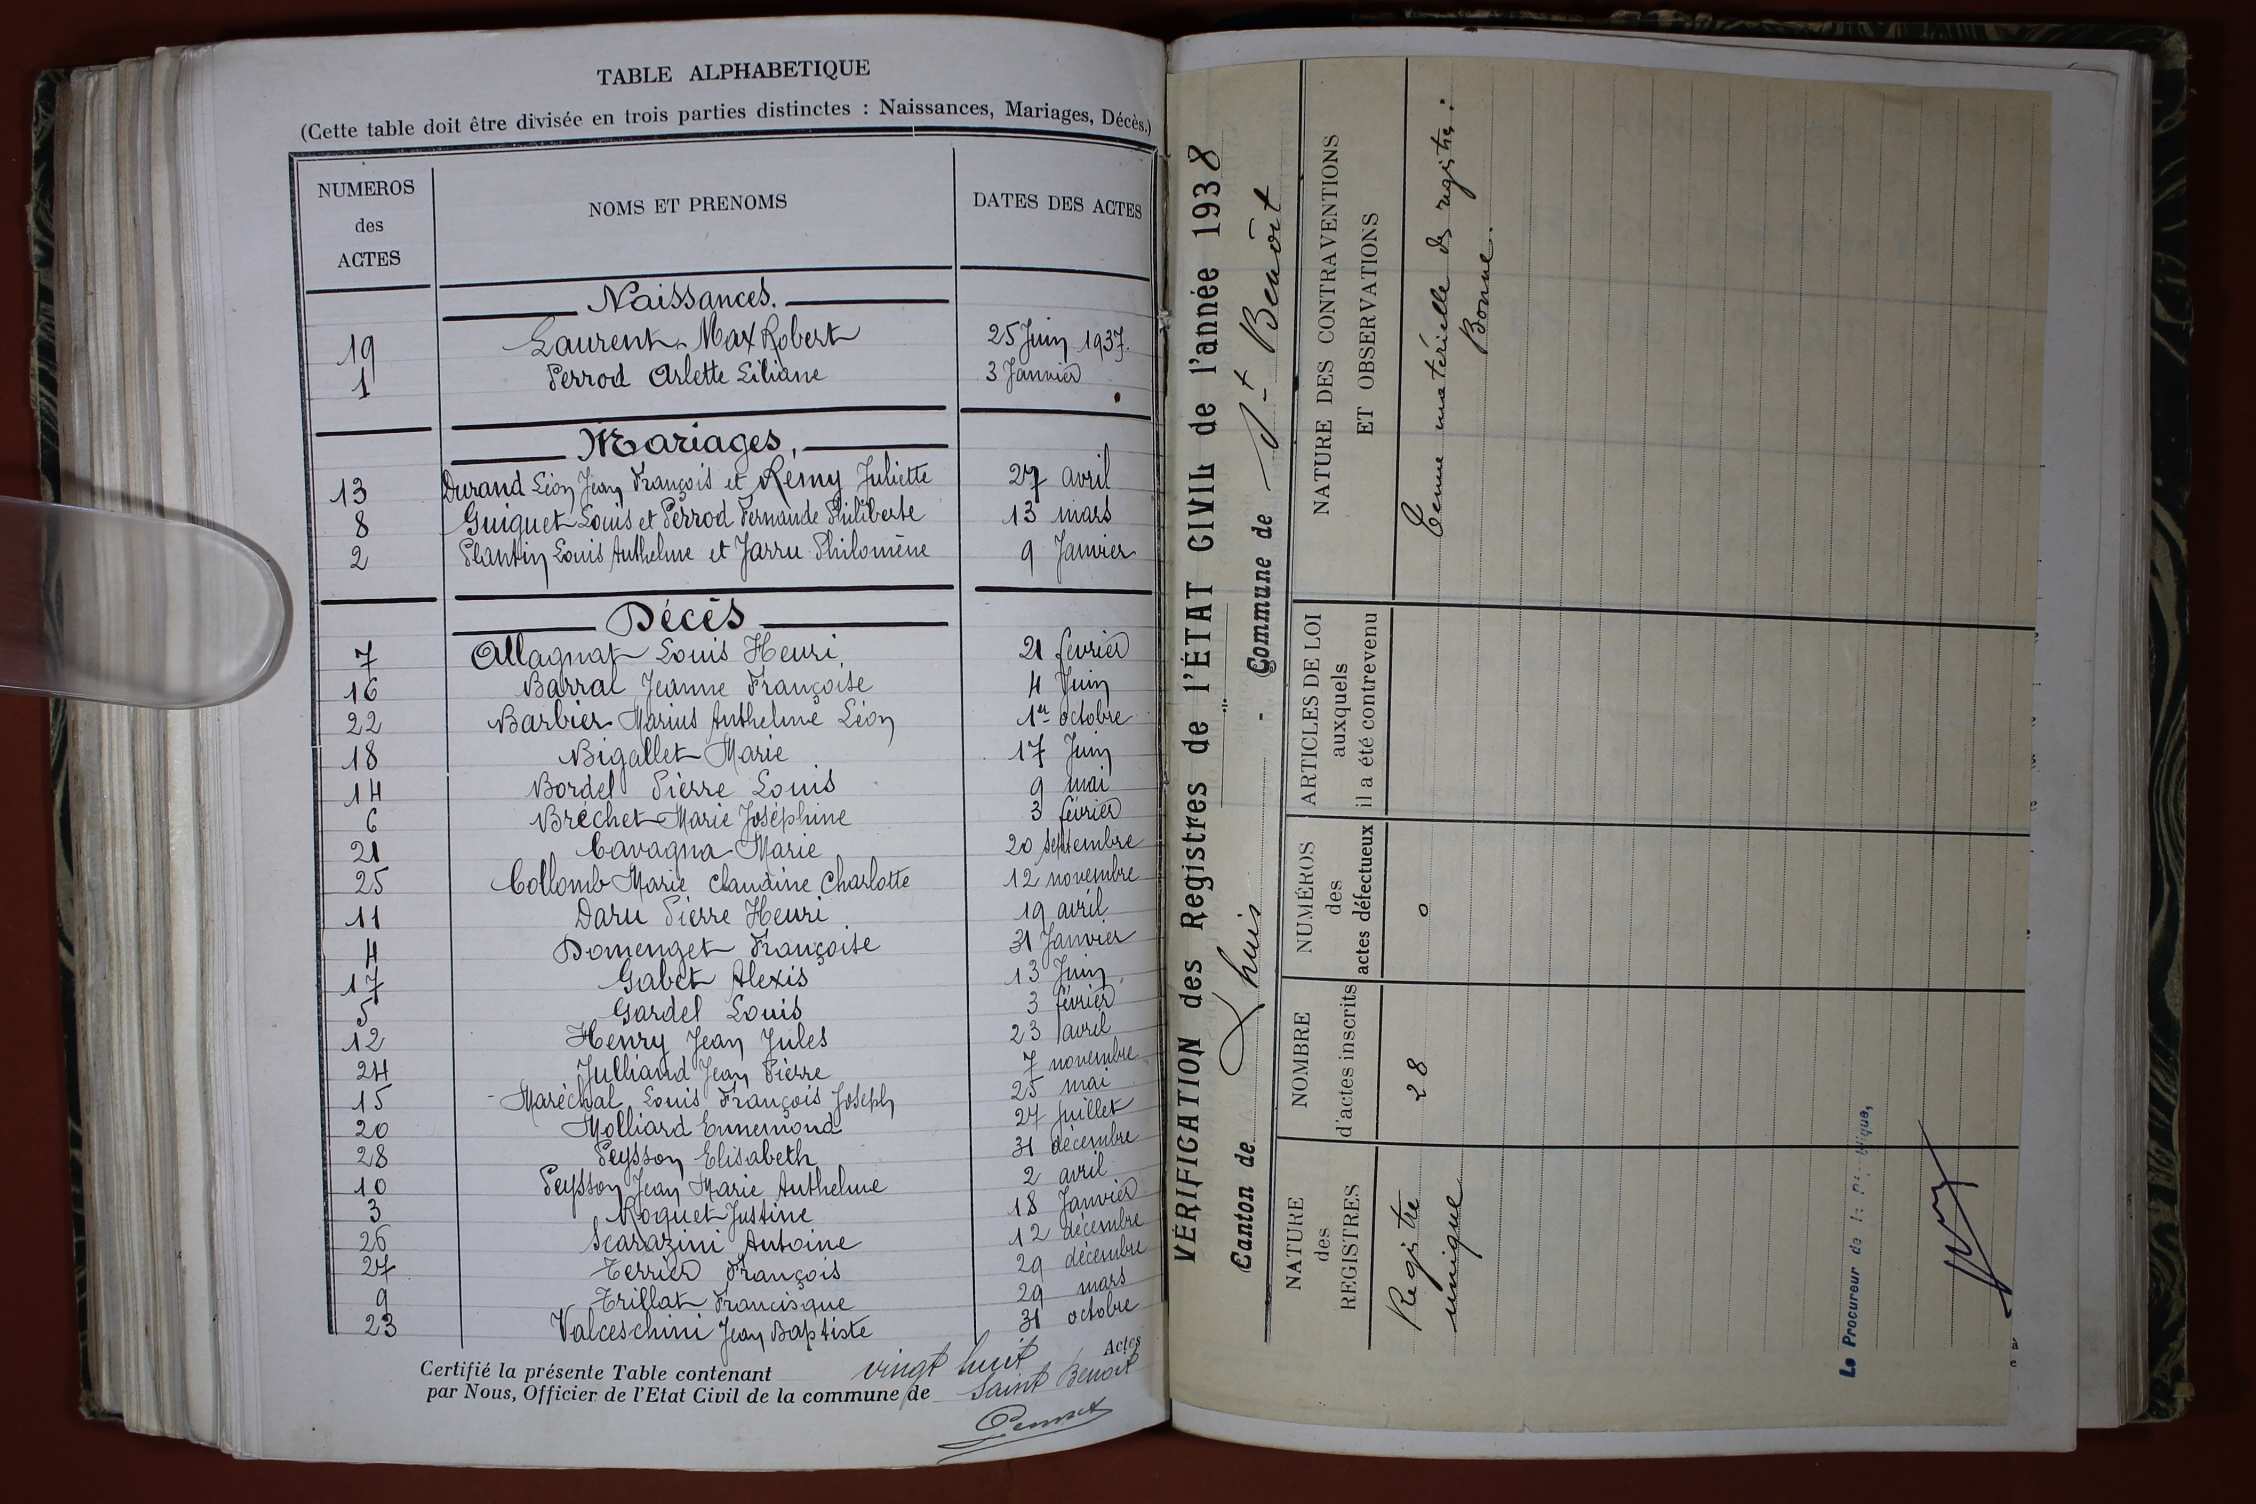 TABLE ALPHABETIQUE
(Cette table doit être divisée en trois parties distinctes : Naissances, Mariages, Décès.)
NUMEROS des ACTES NOMS ET PRENOMS DATES DES ACTES
Naissances.
19 Laurent Max Robert 25 Juin 1937.
1 Perrod Arlette Liliane 3 Janvier
Mariages,
13 Durand Léon Jean François et Remy Juliette 27 avril
8 Guiguet Louis et Perrod Fernande Philiberte 13 mars
2 Plantin Louis Anthelme et Jarru Philomène 9 Janvier
Décès
7 Allagnat Louis Henri 21 février
16 Barral Jeanne Françoise 4 Juin
22 Barbier Marius Anthelme Léon 1er octobre
18 Bigallet Marie 17 Juin
14 Bordel Pierre Louis 9 mai
6 Bréchet Marie Joséphine 3 février
21 Cavagna Marie 20 septembre
25 Collomb Marie Claudine Charlotte 12 novembre
11 Daru Pierre Henri 19 avril
4 Domenget Françoise 31 Janvier
17 Gabet Alexis 13 Juin
5 Gardel Louis 3 février
12 Henry Jean Jules 23 avril
24 Julliand Jean Pierre 7 novembre
15 Maréchal Louis François Joseph 25 mai
20 Molliard Ennemond 27 juillet
28 Peysson Elisabeth 31 décembre
10 Peysson Jean Marie Anthelme 2 avril
3 Roguet Justine 18 Janvier
26 Scarazini Antoine 12 décembre
27 Terrier François 29 décembre
9 Trillat Francisque 29 mars
23 Valceschini Jean Baptiste 31 octobre
Certifié la présente Table contenant vingt huit Actes
par Nous, Officier de l'Etat Civil de la commune de Saint Benoit
VÉRIFICATION des Registres de l'ÉTAT CIVIL de l'année 1938
Canton de Lhuis - Commune de St Benoît
NATURE des REGISTRES
NOMBRE d'actes inscrits
NUMÉROS des actes défectueux
ARTICLES DE LOI auxquels il a été contrevenu
NATURE DES CONTRAVENTIONS ET OBSERVATIONS
Registre 28 0 Tenue matérielle des registres.
unique Bonne.
Le Procureur de la